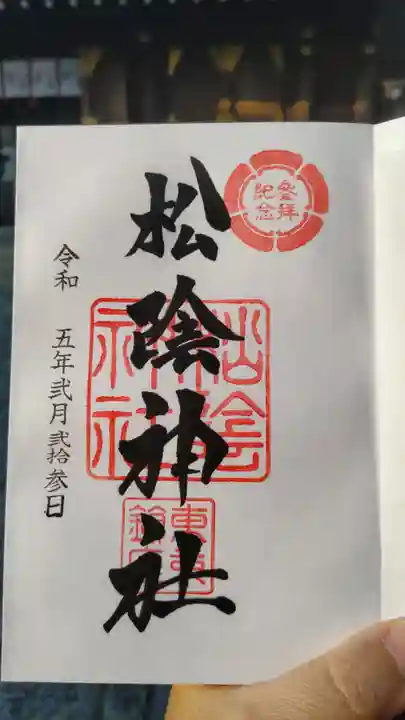 参拝
記念
松陰神社
松陰
神社
令和 五年弐月弐拾参日